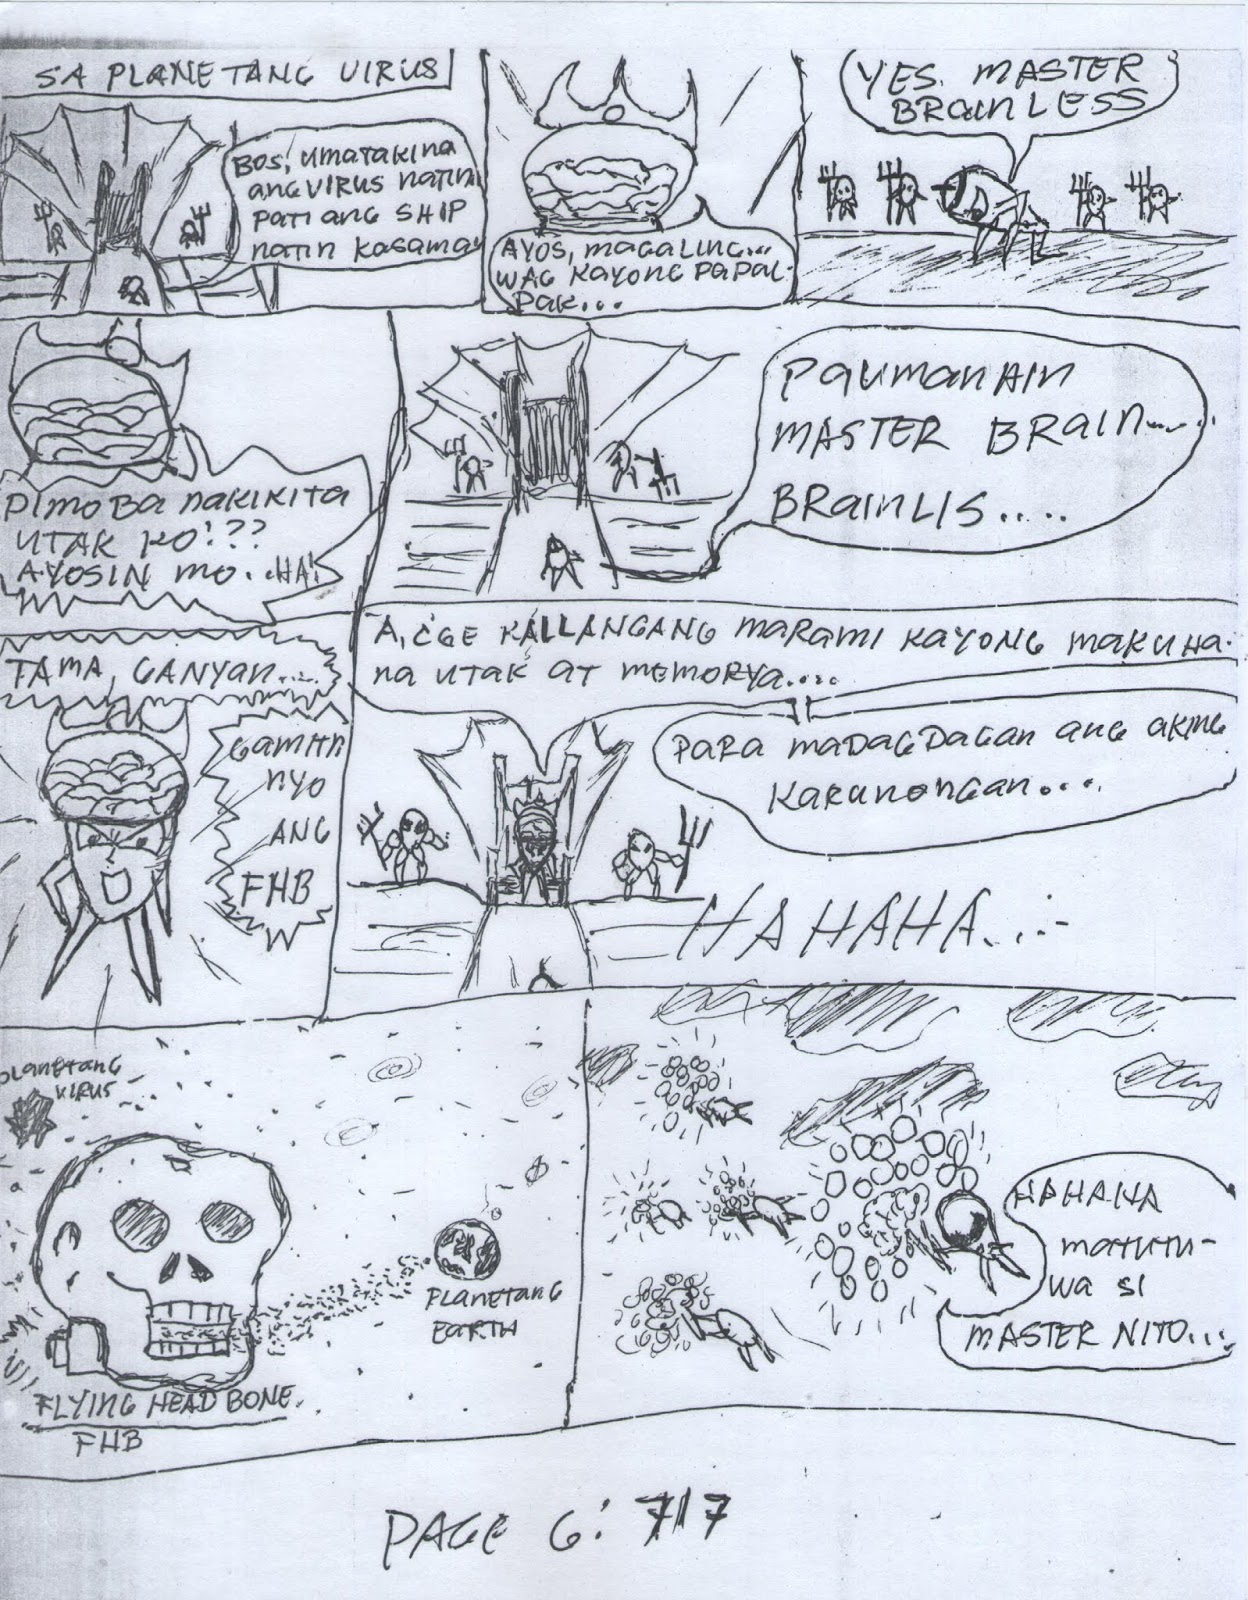 SA PLANETANG VIRUS
BOS, UMATAKI NA
ANG VIRUS NATIN
PATI ANG SHIP
NATIN KASAMA
AYOS, MAGALING...
WAG KAYONG PAPAL-
PAK...
YES. MASTER
BRAINLESS
DI MO BA NAKIKITA
UTAK KO!??
AYOSIN MO..HA!
PAUMANHIN
MASTER BRAIN......
BRAINLIS.....
TAMA, GANYAN....
GAMITIN
NYO
ANG
FHB
A, CGE KAILANGANG MARAMI KAYONG MAKUHA.
NA UTAK AT MEMORYA....
PARA MADAGDAGAN ANG AKING
KARUNONGAN....
HAHAHA...
PLANETANG
VIRUS
PLANETANG
EARTH
FLYING HEAD BONE.
FHB
HAHAHA
MATUTU-
WA SI
MASTER NITO...
PAGE 6: 717